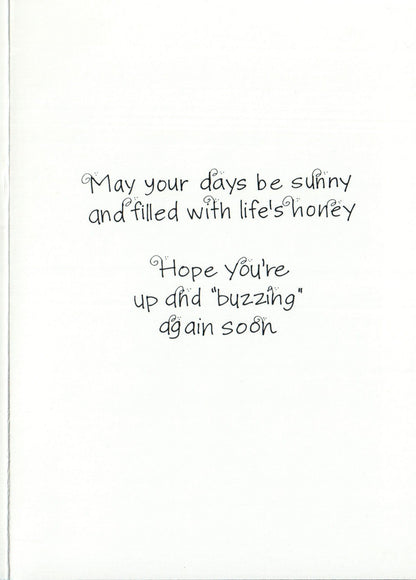 May your days be sunny
and filled with life's honey
Hope you're
up and "buzzing"
again soon